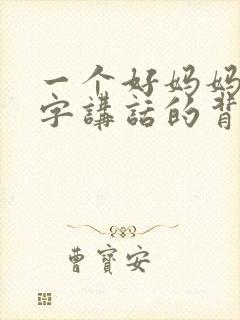 一个好妈妈
字講話的背
曹寶安